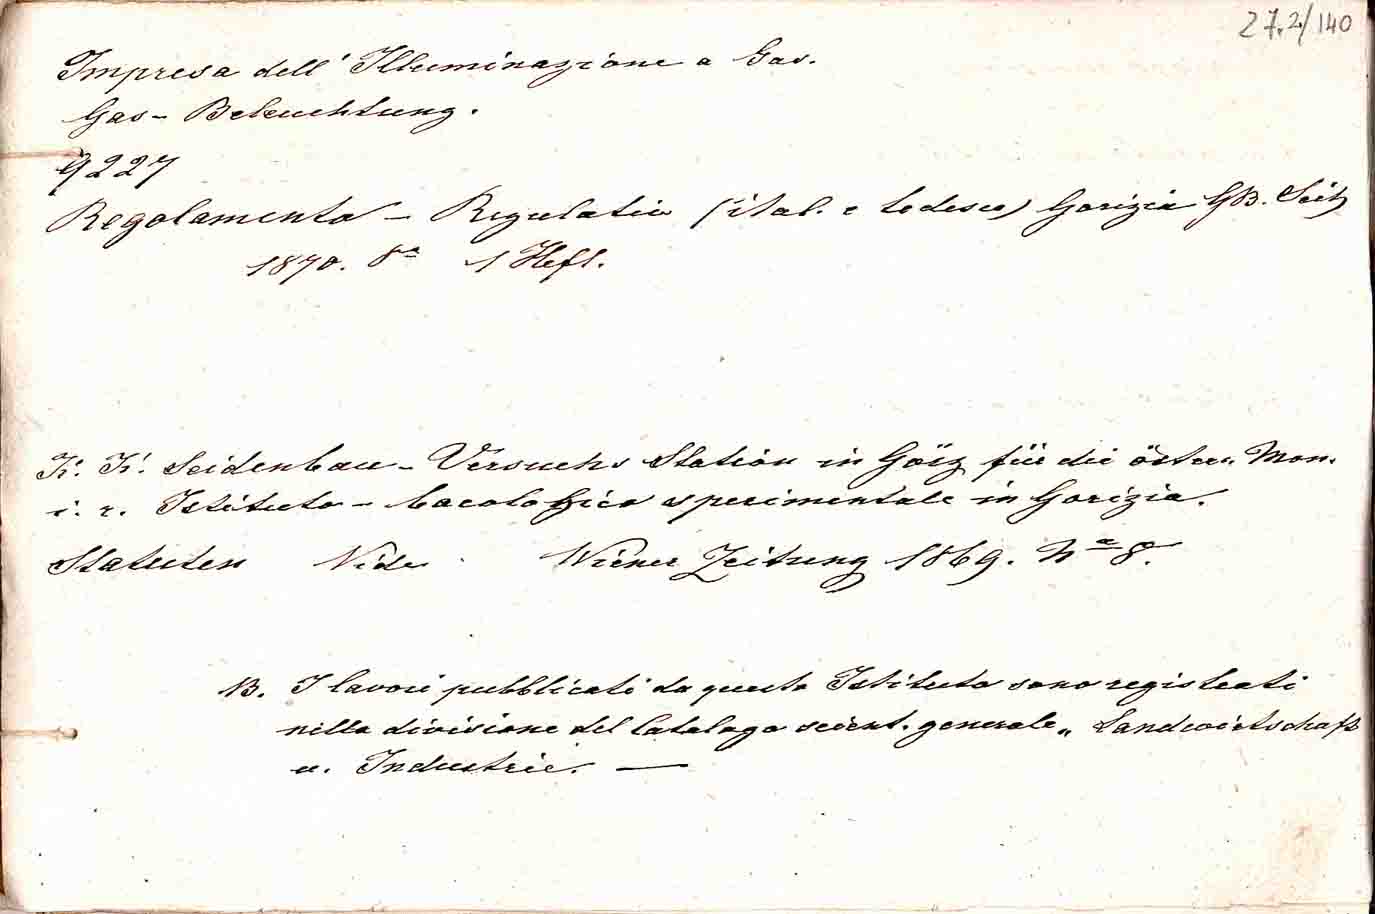 27.2/140
Impresa dell' Illuminazione a Gas.
Gas - Beleuchtung.
9227
Regolamento - Regulativ (ital. e tedesco) Gorizia GB. Seitz
1870. 8º 1 Heft.
K. K. Seidenbau - Versuchs Station in Görz für die österr. Mon.
i. r. Istituto - bacologico sperimentale in Gorizia.
Statuten Vide Wiener Zeitung 1869. Nº 8.
NB. I lavori pubblicati da questo Istituto sono registrati
nella divisione del Catalogo scient. generale „ Landwirtschaft
u. Industrie. —